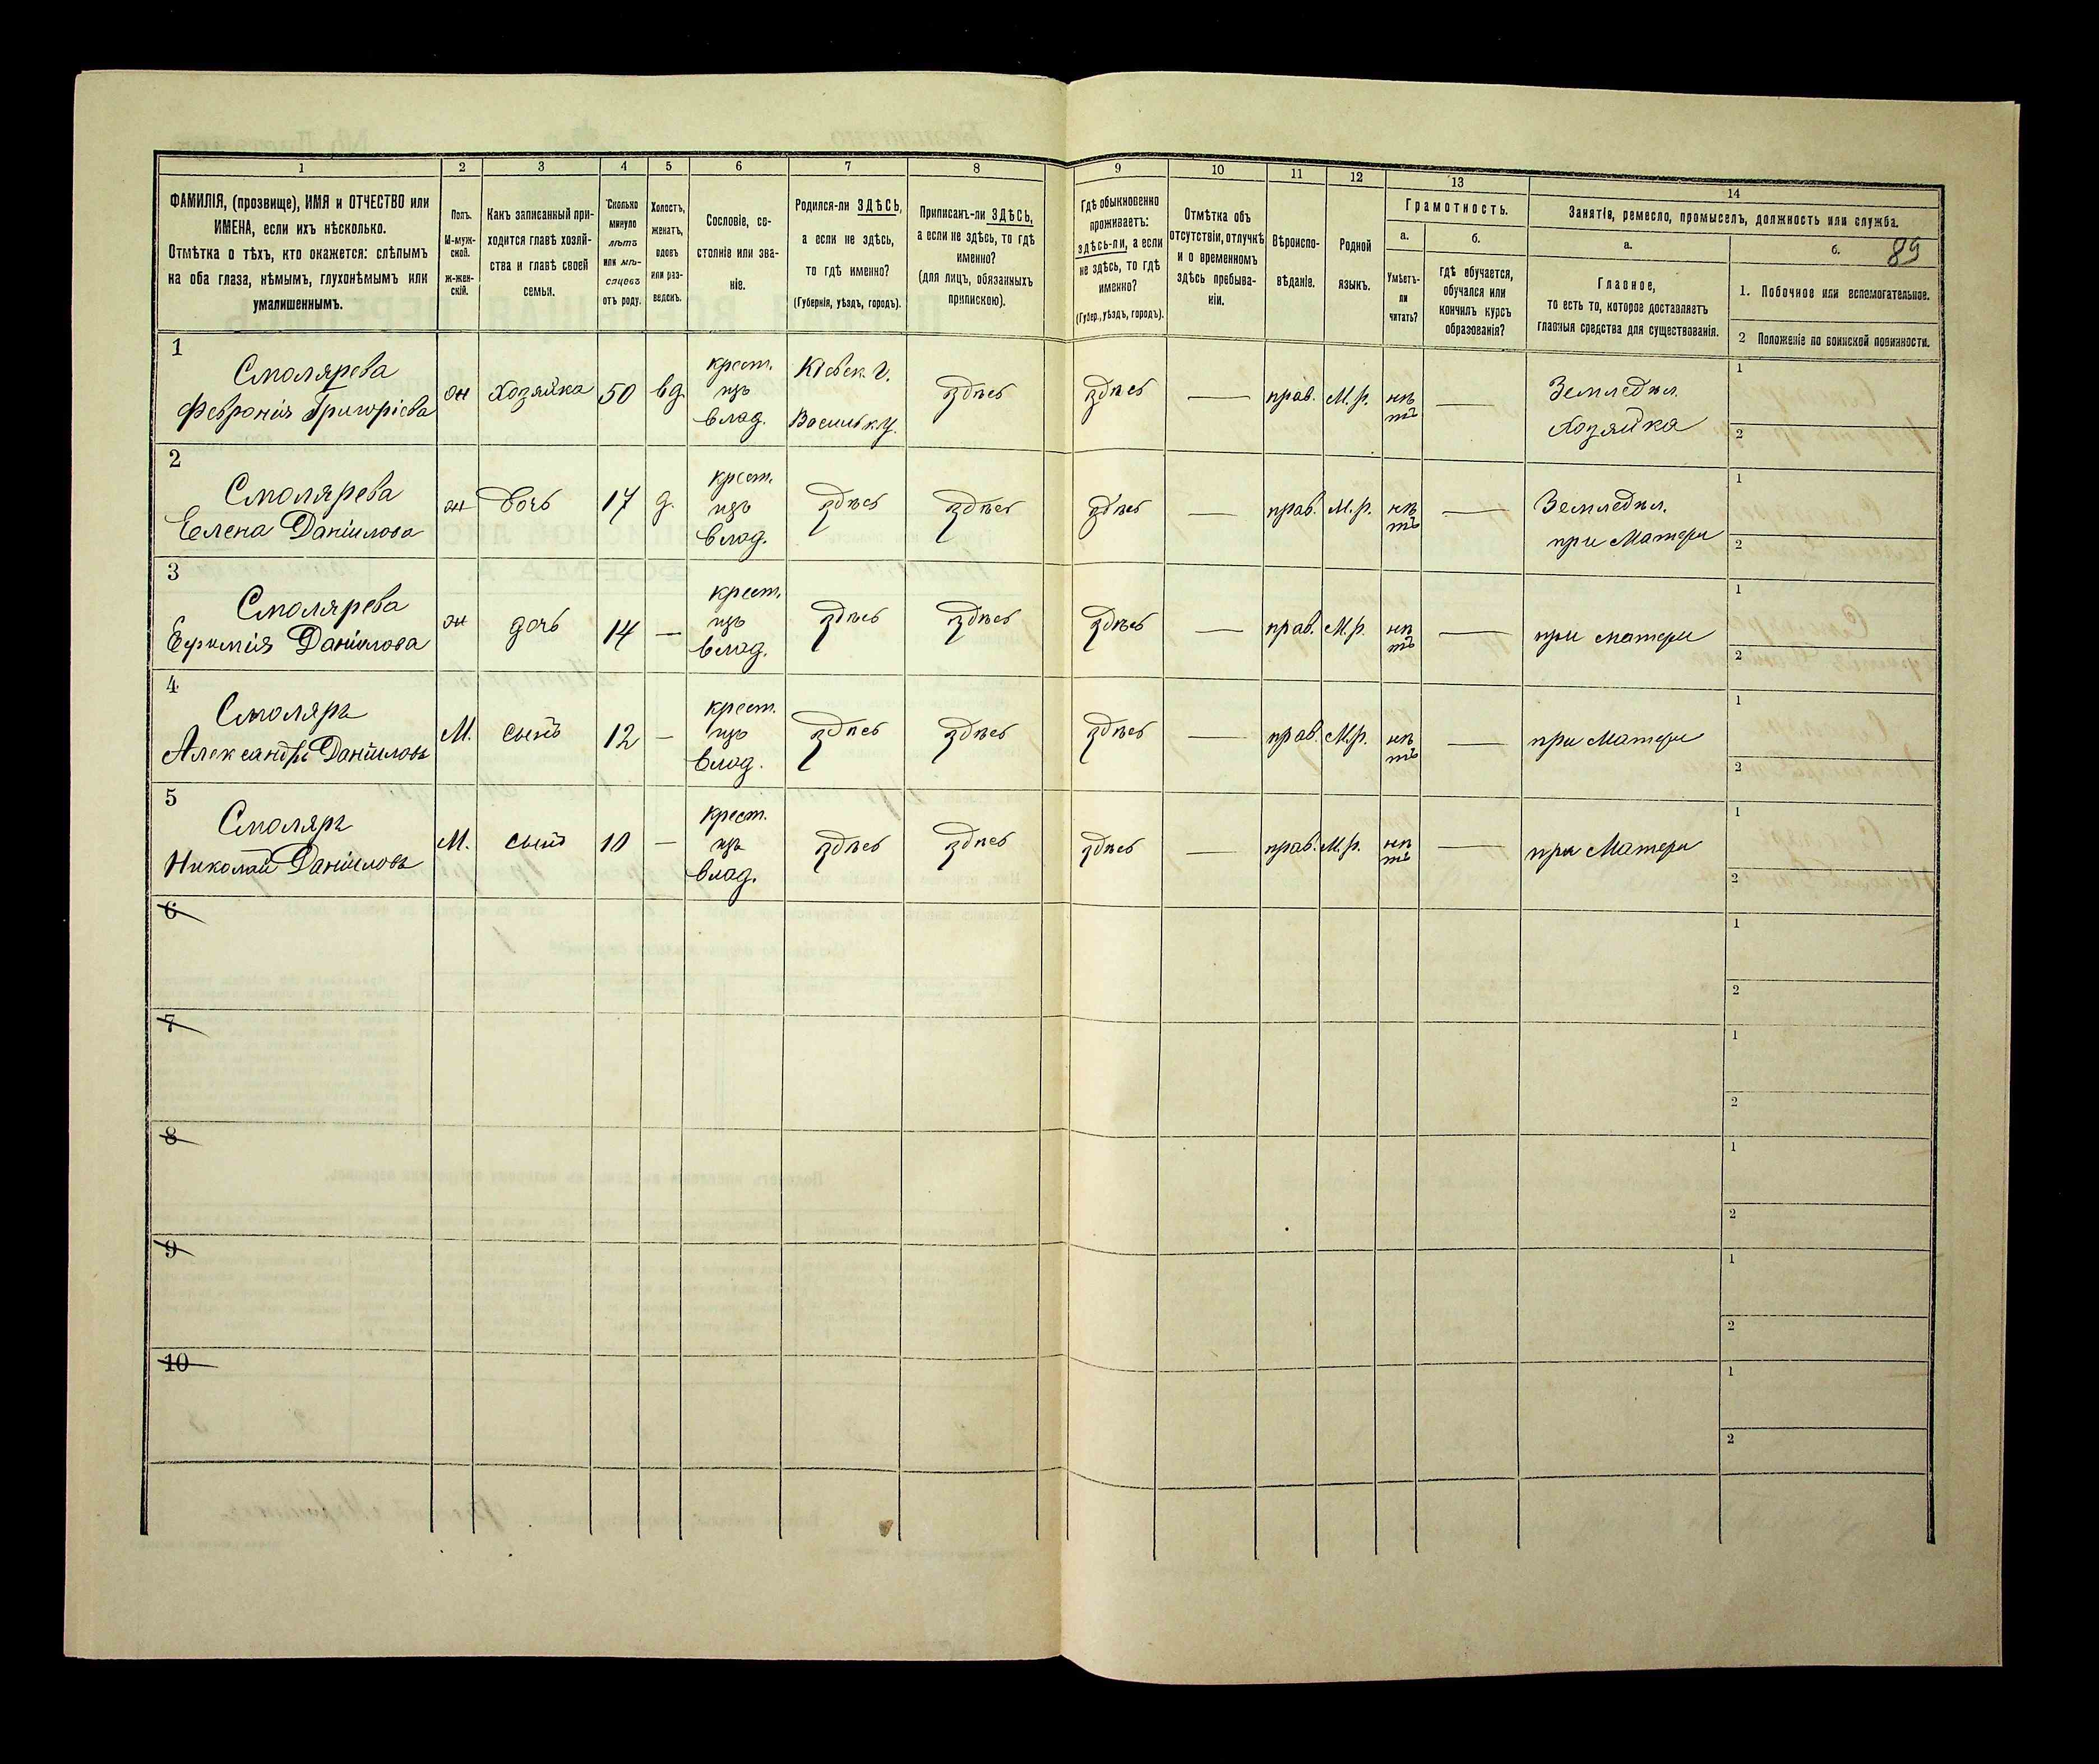 1 2 3 4 5 6 7 8 9 10 11 12 13 14
ФАМИЛІЯ, (прозвище), ИМЯ и ОТЧЕСТВО или
ИМЕНА, если ихъ нѣсколько.
Отмѣтка о тѣхъ, кто окажется: слѣпымъ
на оба глаза, нѣмымъ, глухонѣмымъ или
умалишеннымъ.
Полъ.
М-муж-
ской.
ж-жен-
скій.
Какъ записанный при-
ходится главѣ хозяй-
ства и главѣ своей
семьи.
Сколько
минуло
лѣтъ
или мѣ-
сяцевъ
отъ роду.
Холостъ,
женатъ,
вдовъ
или раз-
веденъ.
Сословіе, со-
стояніе или зва-
ніе.
Родился-ли ЗДѢСЬ,
а если не здѣсь,
то гдѣ именно?
(Губернія, уѣздъ, городъ).
Приписанъ-ли ЗДѢСЬ,
а если не здѣсь, то гдѣ
именно?
(для лицъ, обязанныхъ
припискою).
Гдѣ обыкновенно
проживаетъ:
здѣсь-ли, а если
не здѣсь, то гдѣ
именно?
(Губер., уѣздъ, городъ).
Отмѣтка объ
отсутствіи, отлучкѣ
и о временномъ
здѣсь пребыва-
ніи.
Вѣроиспо-
вѣданіе.
Родной
языкъ.
Грамотность.
а.
Умѣетъ-
ли
читать?
б.
гдѣ обучается,
обучался или
кончилъ курсъ
образованія?
Занятіе, ремесло, промыселъ, должность или служба.
а.
Главное,
то есть то, которое доставляетъ
главныя средства для существованія.
б.
89
1. Побочное или вспомогательное.
2 Положеніе по воинской повинности.
1
Смолярева
Февронія Григоріева
ж
Хозяйка
50
вд.
крест.
изъ
влад.
Кіевск. г.
Васильк. у.
здѣсь
здѣсь
—
прав.
М. р.
нѣ
тъ
—
Земледѣл.
Хозяйка
1
2
2
Смолярева
Елена Даніилова
ж
Дочь
17
д.
крест.
изъ
влад.
здѣсь
здѣсь
здѣсь
—
прав.
М. р.
нѣ
тъ
—
Земледѣл.
при Матери
1
2
3
Смолярева
Ефимія Даніилова
ж
дочь
14
—
крест.
изъ
влад.
здѣсь
здѣсь
здѣсь
—
прав.
М. р.
нѣ
тъ
—
при матери
1
2
4
Смоляръ
Александръ Даніиловъ
М.
сынъ
12
—
крест.
изъ
влад.
здѣсь
здѣсь
здѣсь
—
прав.
М. р.
нѣ
тъ
—
при Матери
1
2
5
Смоляръ
Николай Даніиловъ
М.
сынъ
10
—
крест.
изъ
влад.
здѣсь
здѣсь
здѣсь
—
прав.
М. р.
нѣ
тъ
—
при Матери
1
2
6
1
2
7
1
2
8
1
2
9
1
2
10
1
2